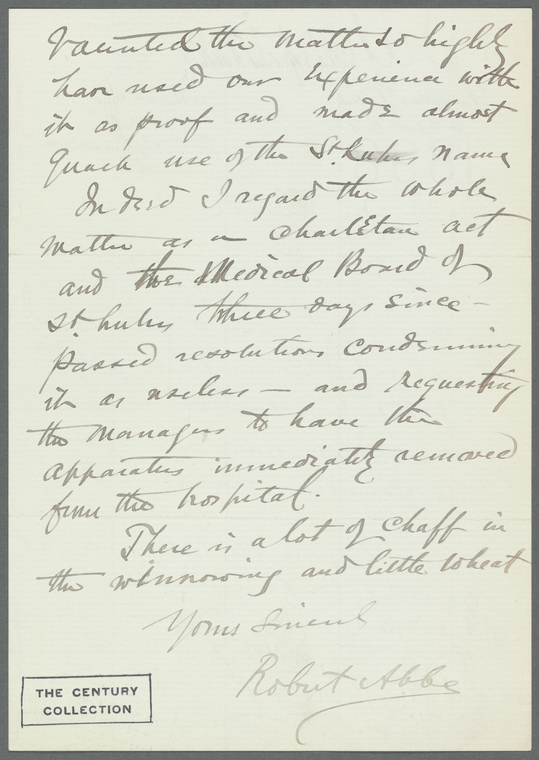 vaunted the matter so highly
have used our experience with
it as proof and made almost
quack use of the St. Lukes name
Indeed I regard the whole
matter as a charletan act
and the Medical Board of
St. Lukes three days since –
passed resolutions condemning
it as useless – and requesting
the managers to have the
apparatus immediately removed
from the hospital.
There is a lot of chaff in
the winnowing and little wheat
Yours Sincerely
Robert Abbe
THE CENTURY
COLLECTION